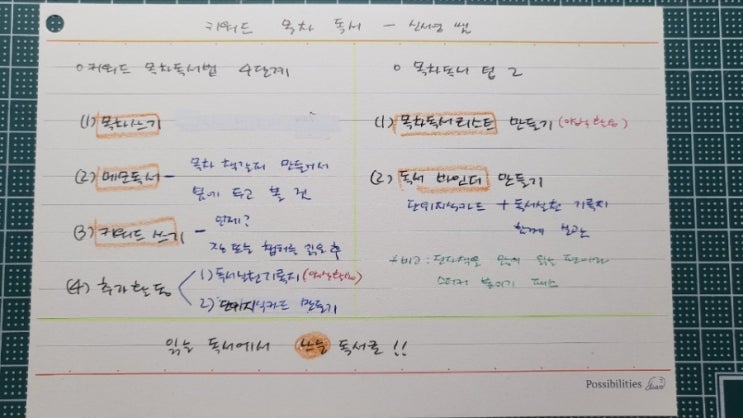 키워드 목차 독서 - 신서영 쌤
o 키워드 목차독서법 4단계
(1) 목차쓰기
(2) 메모독서 - 목차 책갈피 만들어서
옆에 두고 볼 것
(3) 키워드 쓰기 - 언제?
장 또는 챕터를 읽은 후
(4) 추가활동
1) 독서실천기록지
2) 단키지식카드 만들기
o 목차독서 팁 2
(1) 목차독서리스트 만들기
(2) 독서 바인더 만들기
단키지식카드 + 독서실천 기록지
함께 보관
* 비고 : 많이 읽는 편이라
스티커 붙이기 패스
읽는 독서에서 남는 독서로 !!
Possibilities